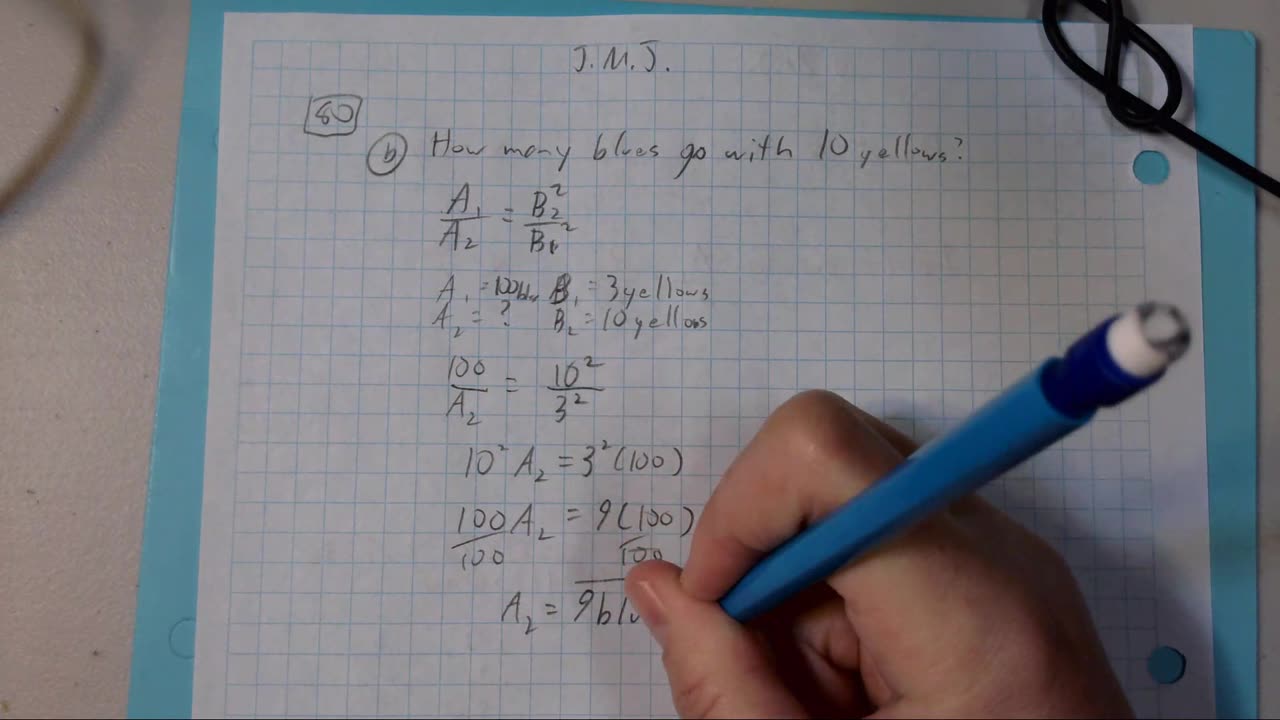 J.M.J.
80
b How many blues go with 10 yellows?
A₁/A₂ = B₂²/B₁²
A₁ = 100 blu B₁ = 3 yellows
A₂ = ? B₂ = 10 yellows
100/A₂ = 10²/3²
10² A₂ = 3² (100)
100A₂/100 = 9(100)/100
A₂ = 9 blu